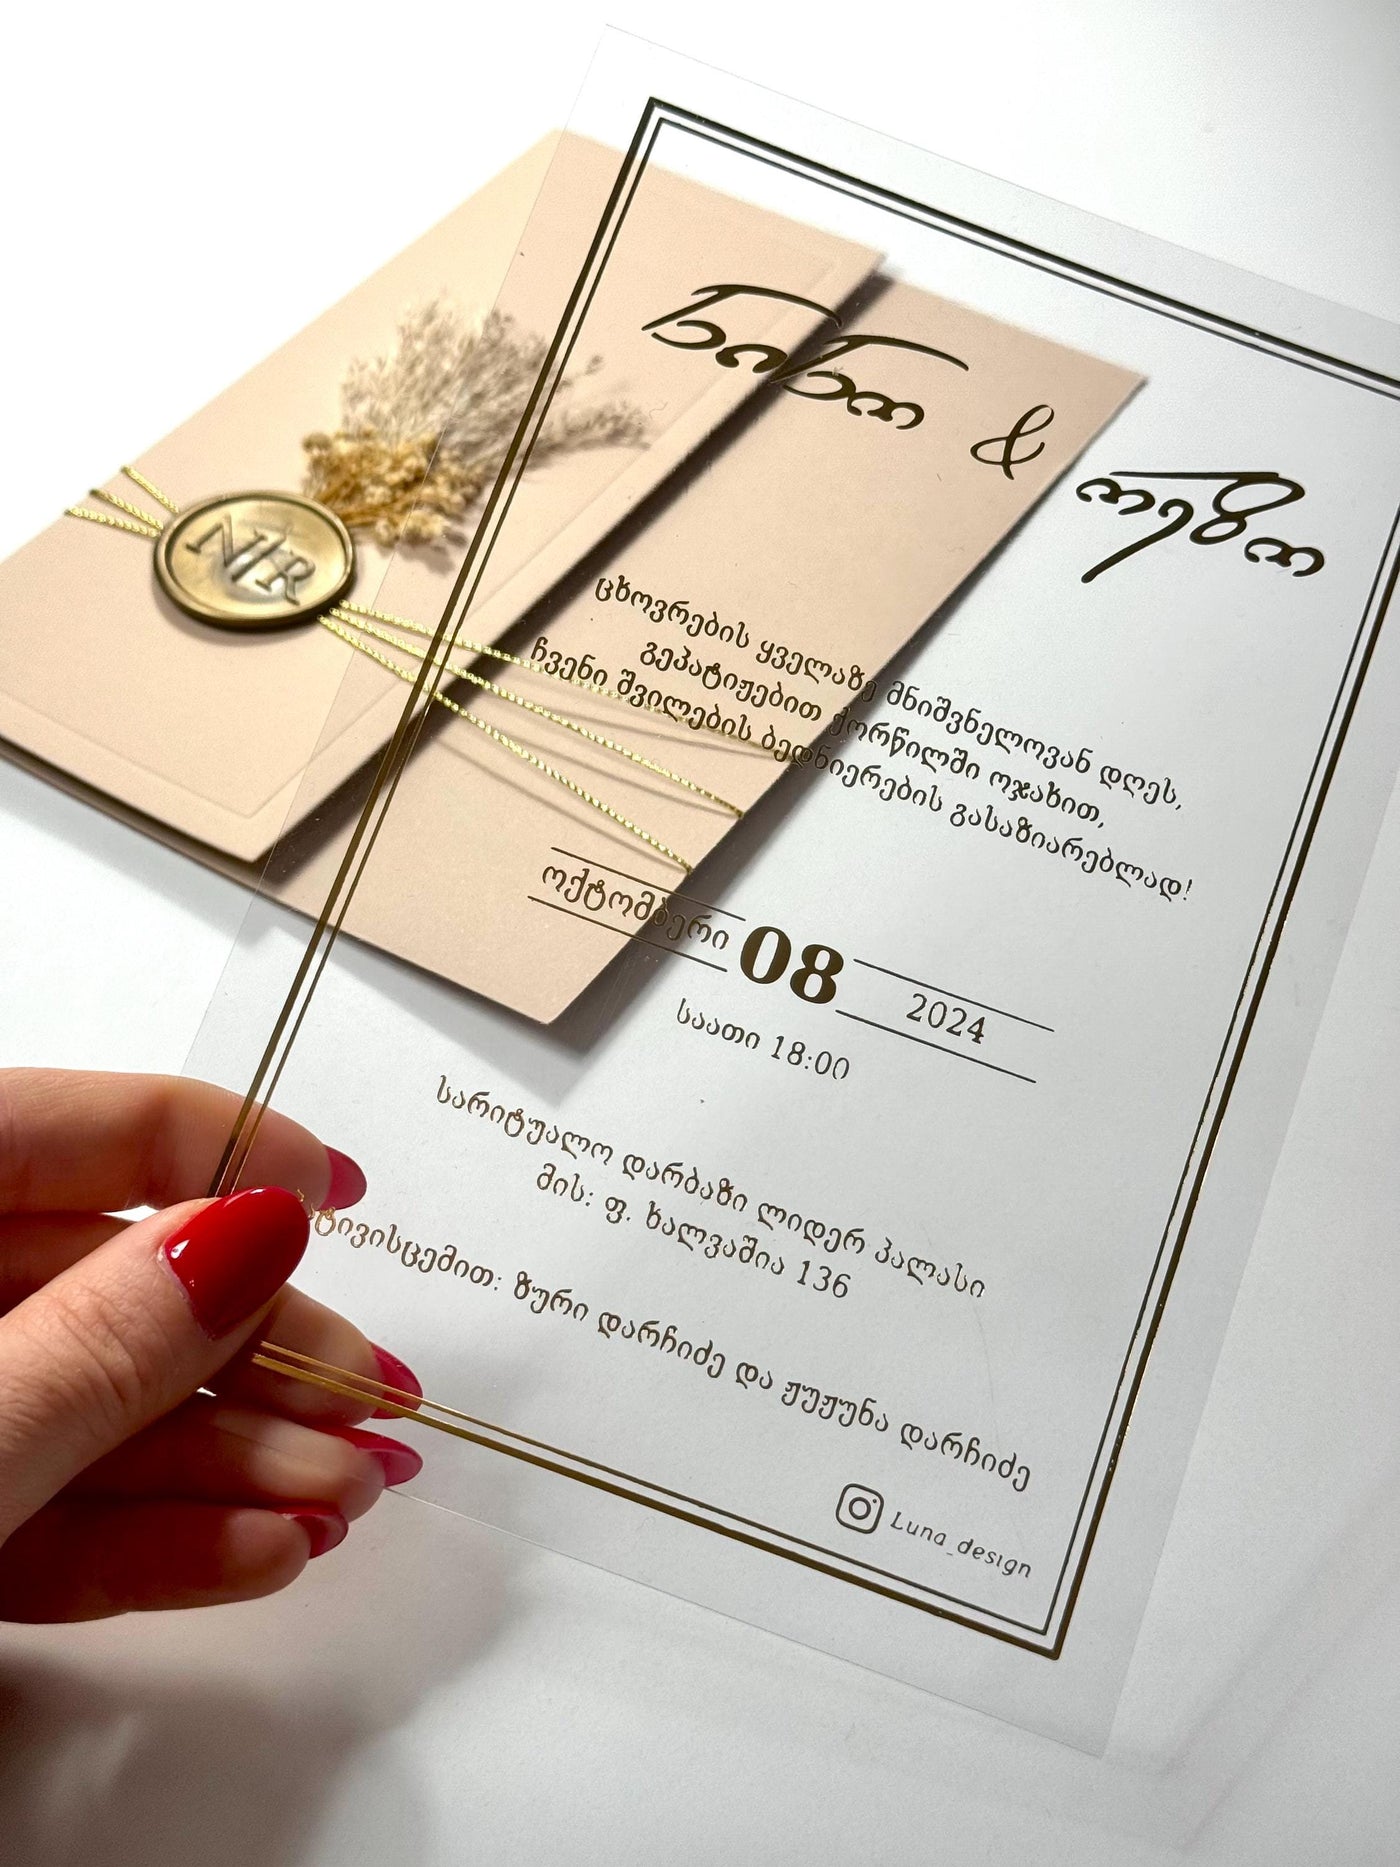 ნინო & რეზო
ცხოვრების ყველაზე მნიშვნელოვან დღეს,
გეპატიჟებით ქორწილში ოჯახით,
ჩვენი შვილების ბედნიერების გასაზიარებლად!
ოქტომბერი 08 2024
საათი 18:00
სარიტუალო დარბაზი ლიდერ პალასი
მის: ფ. ხალვაშია 136
პატივისცემით: ზური დარჩიძე და ჟუჟუნა დარჩიძე
Luna_design
N R